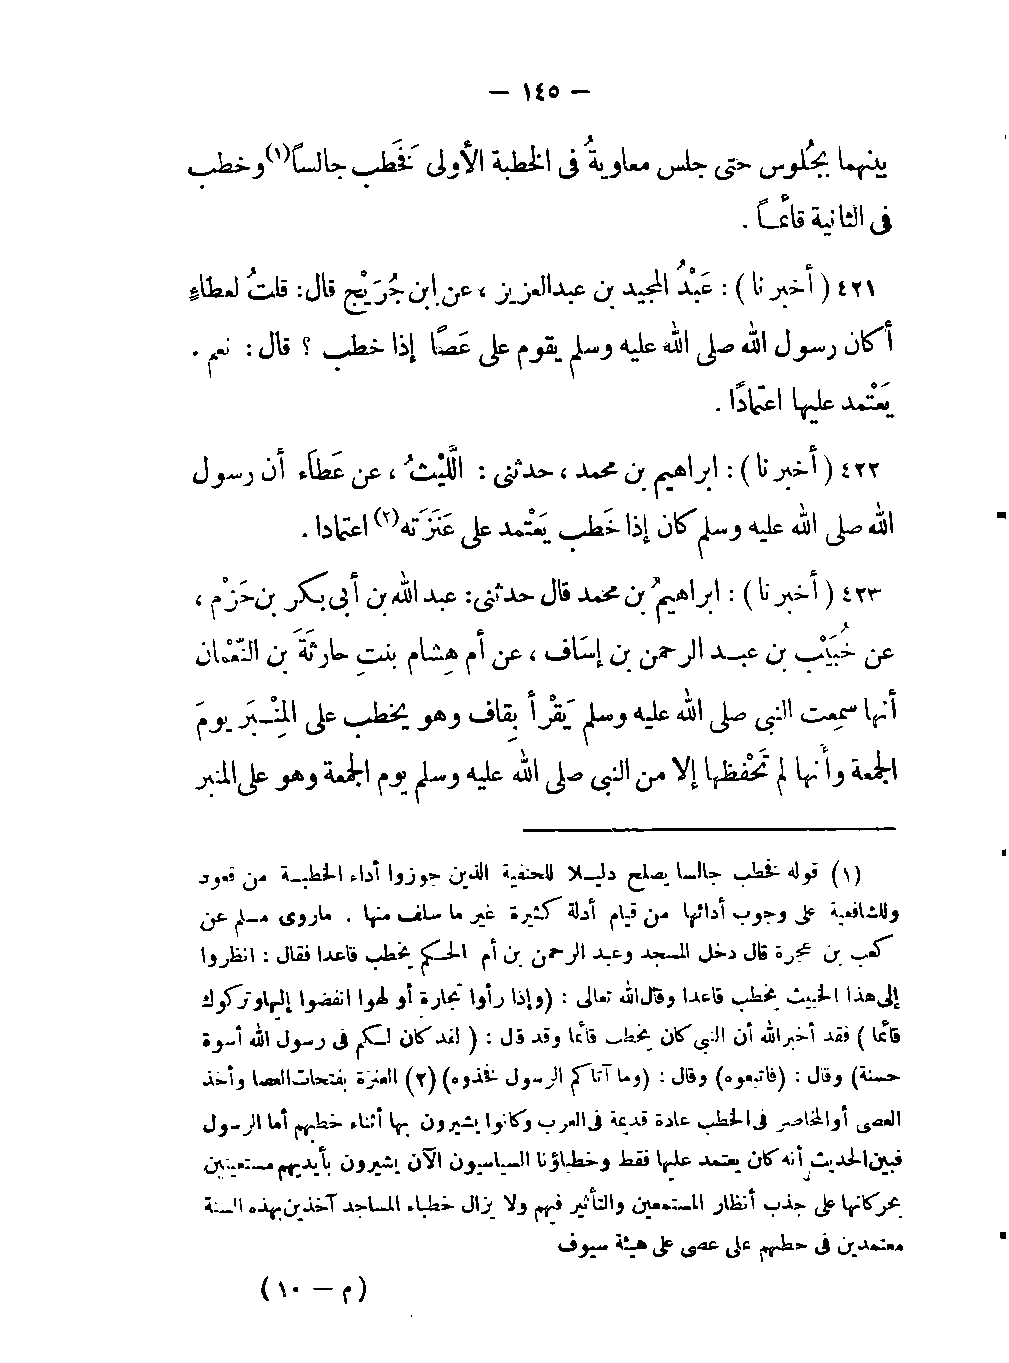 — ١٤٥ —
بينهما بِجُلوس حتى جلس معاويةُ فى الخطبة الأولى فَخَطَب جالساً(١) وخطب
فى الثانية قائمًـا .
٤٢١ ( أخبرنا ) : عَبْدُ المجيد بن عبدالعزيز ، عن ابن جُرَيْج قال : قلتُ لعطاءٍ
أكان رسول الله صلى الله عليه وسلم يقوم على عَصًا إذا خطب ؟ قال : نعم .
يَعْتمد عليها اعتمادًا .
٤٢٢ ( أخبرنا ) : ابراهيم بن محمد ، حدثنى : اللَّيْثُ ، عن عَطاَء أن رسول
الله صلى الله عليه وسلم كان إذا خَطب يَعْتمد على عَنَزَته(٢) اعتمادا .
٤٢٣ ( أخبرنا ) : ابراهيمُ بن محمد قال حدثنى : عبد الله بن أبى بكر بن حَزْم ،
عن خُبَيْب بن عبـد الرحمن بن إسَاف ، عن أم هِشام بنتِ حارثَةَ بن النّعْمان
أنها سمعت النبى صلى الله عليه وسلم يَقْرأ بِقاف وهو يخطب على المِنْـبَر يومَ
الجمعة وأنها لم تَحْفظها إلا من النبى صلى الله عليه وسلم يوم الجمعة وهو على المنبر
(١) قوله فخطب جالسا يصلح دليـلا للحنفية الذين جوزوا أداء الخطبـة من قعود
وللشافعية على وجوب أدائها من قيام أدلة كثيرة غير ما سلف منها . ماروى مسلم عن
كعب بن عجرة قال دخل المسجد وعبد الرحمن بن أم الحـكم يخطب قاعدا فقال : انظروا
إلى هذا الخبيث يخطب قاعدا وقال الله تعالى : (وإذا رأوا تجارة أو لهوا انفضوا إليها وتركوك
قائما ) فقد أخبر الله أن النبى كان يخطب قائما وقد قال : ( لقد كان لـكم فى رسول الله أسوة
حسنة) وقال : (فاتبعوه) وقال : (وما آتاكم الرسول فخذوه) (٢) العنزة بفتحات العصا وأخذ
العصى أو المخاصر فى الخطب عادة قديمة فى العرب وكانوا يشيرون بها أثناء خطبهم أما الرسول
فبين الحديث أنه كان يعتمد عليها فقط وخطباؤنا السياسيون الآن يشيرون بأيديهم مستعينين
بحركاتها على جذب أنظار المستمعين والتأثير فيهم ولا يزال خطباء المساجد آخذين بهذه السنة
معتمدين فى خطبهم على عصى على هيئة سيوف
(م — ١٠)